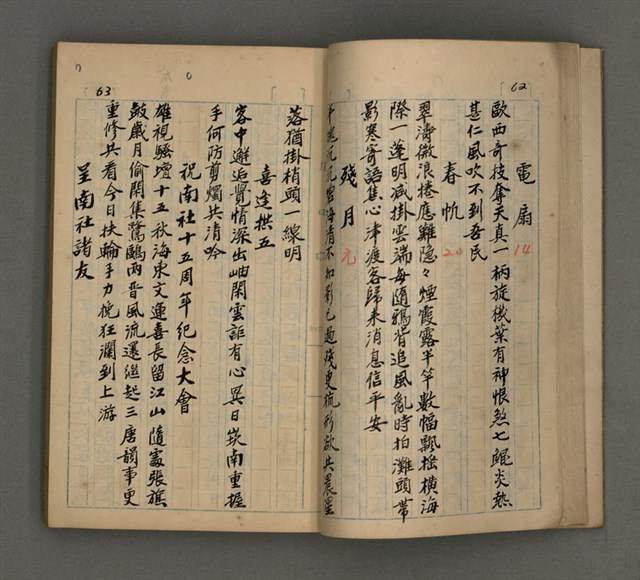 62
電扇 14
歐西奇技奪天真一柄旋機葉有神恨煞七鯤炎熱
甚仁風吹不到吾民
春帆 20
翠濤微浪捲應難隐々煙霞露半竿數幅飄搖橫海
際一蓬明滅掛雲端每隨鴉背追風亂時拍灘頭帶
影寒寄語焦心津渡客歸來消息信平安
殘月 元
落猶掛梢頭一線明
63
喜逢拱五
客中邂逅覺情深出岫閑雲詎有心異日崁南重握
手何防剪燭共清吟
祝南社十五周年紀念大會
雄視騷壇十五秋海東文運喜長留江山隨處張旗
鼓歲月偷閑集鷺鷗兩晋風流還繼起三唐韻事更
重修共看今日扶輪手力挽狂瀾到上游
呈南社諸友